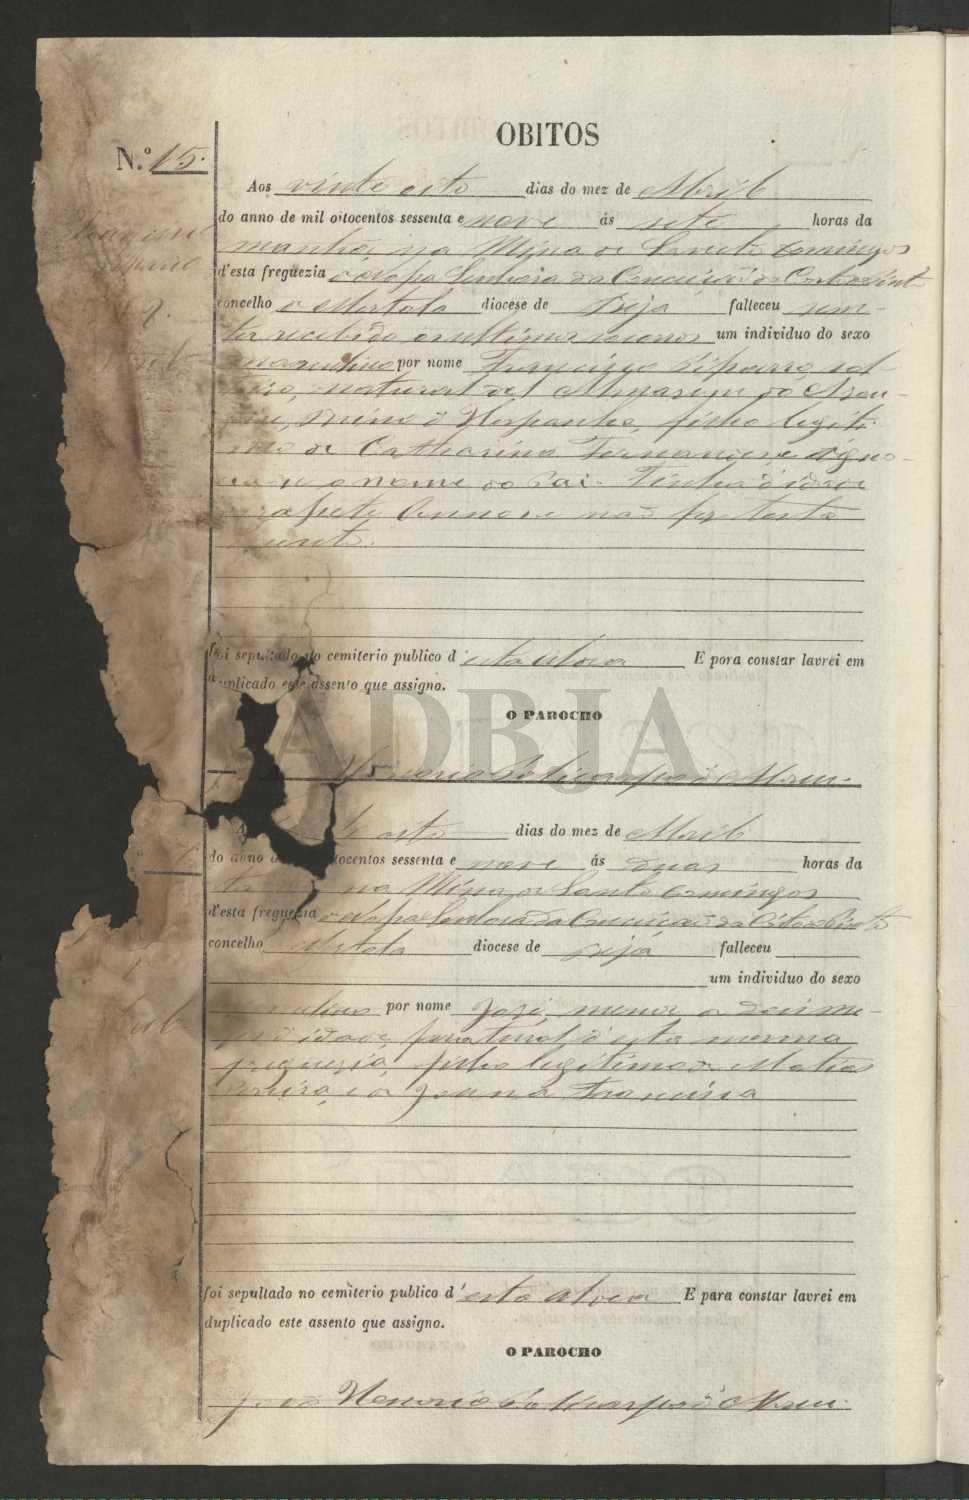 OBITOS
N.º 15.
Aos vinte oito dias do mez de Abril
do anno de mil oitocentos sessenta e nove ás sete horas da
manhã, na Mina de Santo Domingos
d'esta freguezia de Nossa Senhora da Conceição da Corte do Pinto
concelho de Mertola diocese de Beja falleceu sem
ter recebido os ultimos um individuo do sexo
masculino por nome Francisco sol-
teiro, natural de Almazem do
Reino d'Hespanha, filho legiti-
mo de Catharina Fernandes, e igno-
ra-se o nome do Pai. Tinha d'idade
sete annos e não fez testa
mento.
foi sepultado no cemiterio publico d'esta aldeia E pora constar lavrei em
duplicado este assento que assigno.
O PAROCHO
ADBJA
oito dias do mez de Abril
do anno de mil oitocentos sessenta e nove ás duas horas da
na Mina de Santo Domingos
d'esta freguezia de Nossa Senhora da Conceição da Corte do Pinto
concelho Mertola diocese de Beja falleceu
um individuo do sexo
masculino por nome José, menor de dois me-
d'idade, natural d'esta mesma
freguezia, filho legitimo de Matias
Pereira, e de Joanna Francisca
foi sepultado no cemiterio publico d'esta aldeia E para constar lavrei em
duplicado este assento que assigno.
O PAROCHO